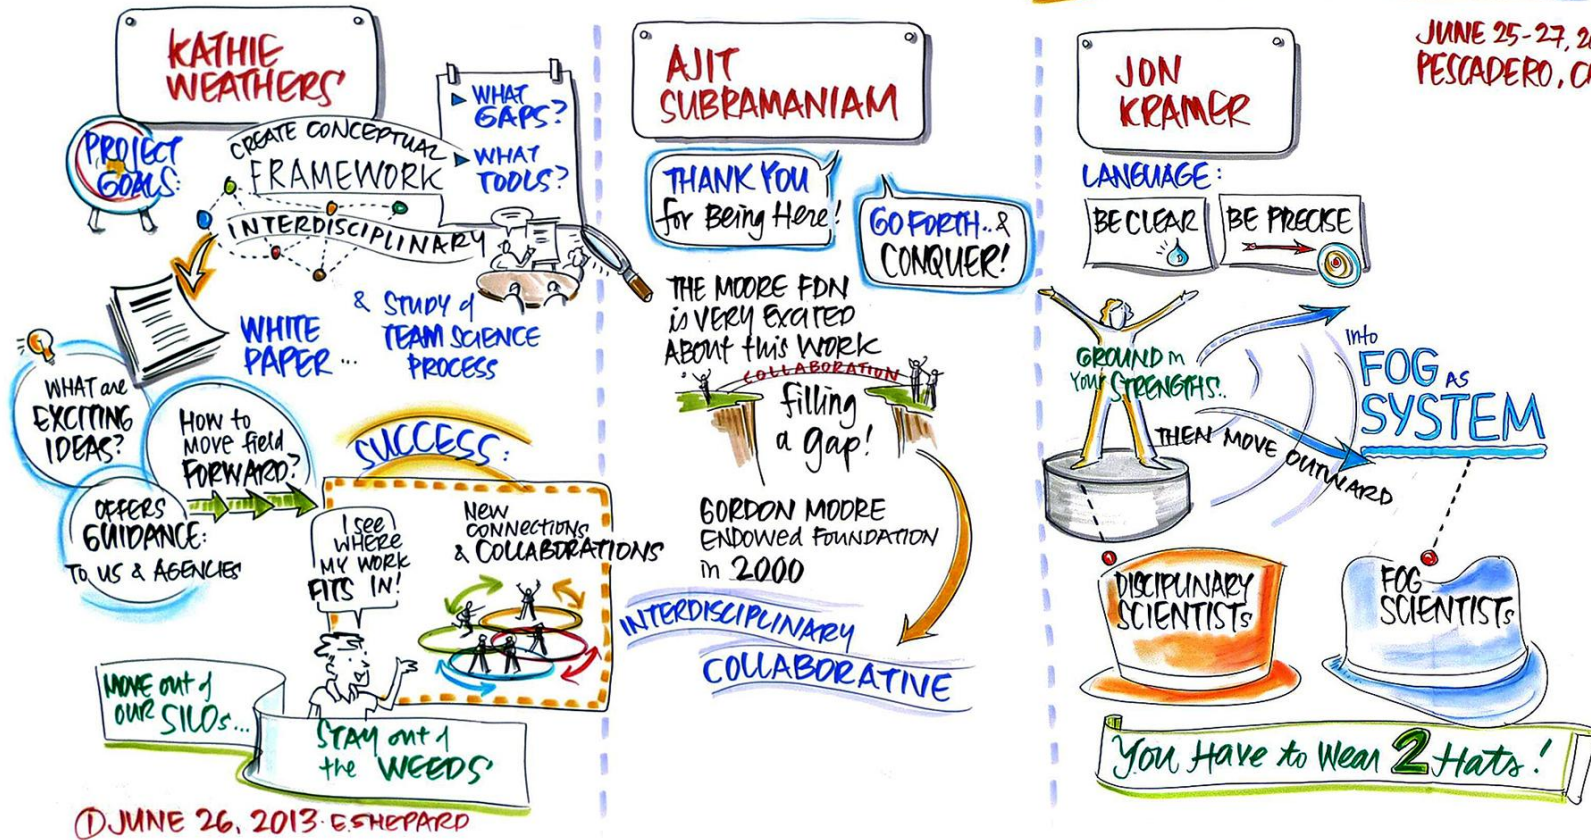 KATHIE
WEATHERS
PROJECT
GOALS:
CREATE CONCEPTUAL
FRAMEWORK
INTERDISCIPLINARY
WHAT
GAPS?
WHAT
TOOLS?
WHITE
PAPER...
& STUDY of
TEAM SCIENCE
PROCESS
WHAT are
EXCITING
IDEAS?
How to
move field
FORWARD?
OFFERS
GUIDANCE:
To US & AGENCIES
SUCCESS:
I see
WHERE
MY WORK
FITS IN!
NEW
CONNECTIONS
& COLLABORATIONS
MOVE out of
OUR SILOs...
STAY out of
the WEEDS
① JUNE 26, 2013 · E.SHEPARD
AJIT
SUBRAMANIAM
THANK YOU
for Being Here!
GO FORTH..&
CONQUER!
THE MOORE FDN
is VERY EXCITED
ABOUT this WORK
COLLABORATION
filling
a gap!
GORDON MOORE
ENDOWED FOUNDATION
in 2000
INTERDISCIPLINARY
COLLABORATIVE
JUNE 25-27, 2
PESCADERO, C
JON
KRAMER
LANGUAGE:
BE CLEAR
BE PRECISE
GROUND in
Your STRENGTHS..
THEN MOVE OUTWARD
into
FOG AS
SYSTEM
DISCIPLINARY
SCIENTISTs
FOG
SCIENTISTs
You Have to Wear 2 Hats!